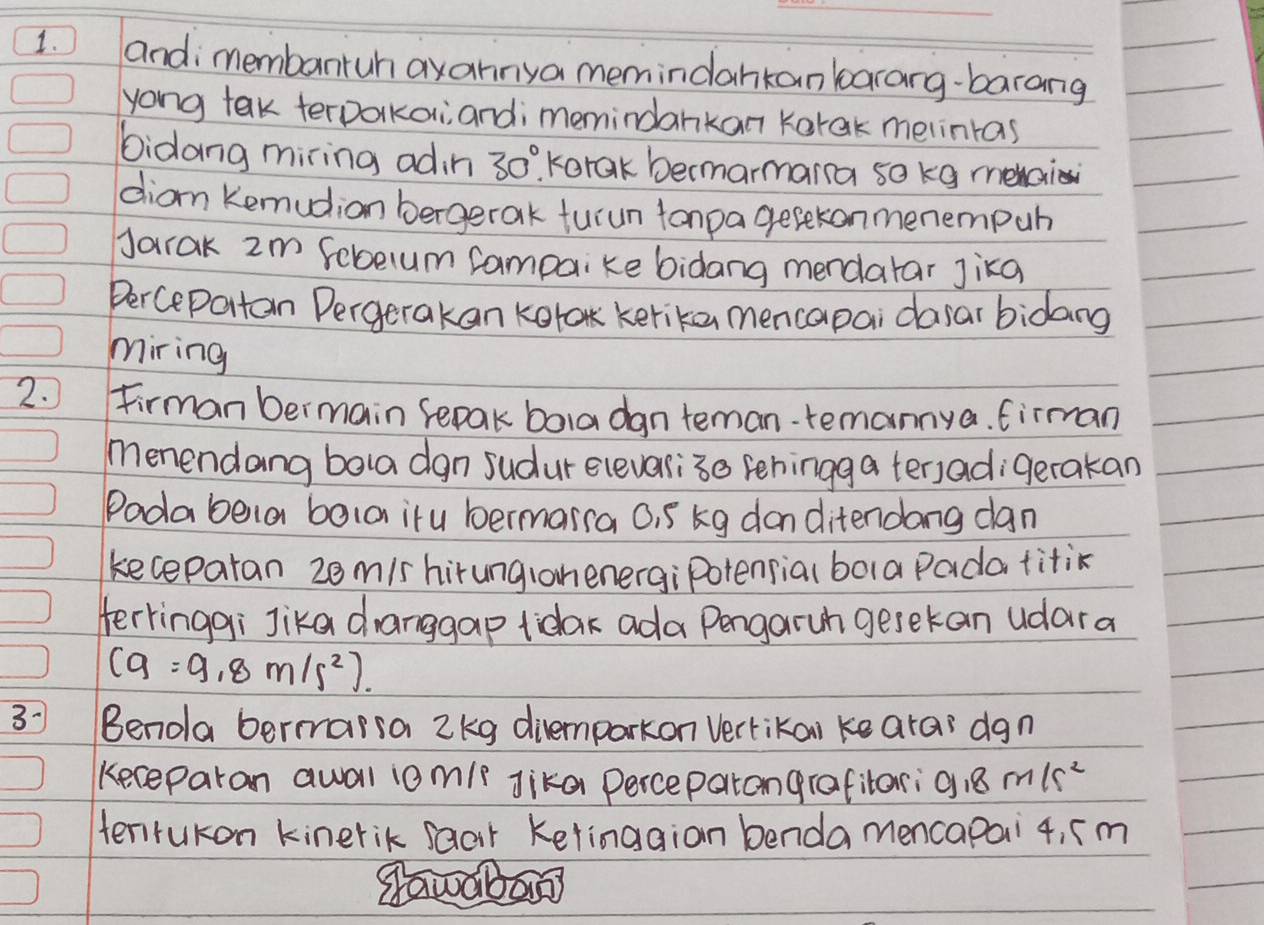 1. andi membantuh ayahnya memindahkan barang-barang
yang tak terpakai. andi memindahkan kotak melintas
bidang miring adih 30°. kotak bermarmassa 50 kg
diam kemudian bergerak turun tanpa gesekan menempuh
Jarak 2m sebelum sampai ke bidang mendatar jika
Percepatan Pergerakan kotak ketika mencapai dasar bidang
miring
2. Firman bermain sepak bola dgn teman-temannya. firman
menendang bola dgn sudut elevasi 30 sehingga terjadi gerakan
Pada bola bola itu bermassa 0,5 kg dan ditendang dgn
kecepatan 20 m/s hitunglah energi Potensial bola Pada titik
tertinggi Jika dianggap tidak ada Pengaruh gesekan udara
(g = 9,8 m/s²).
3. Benda bermassa 2kg dilemparkan Vertikal ke atas dgn
keceparan awal 10 m/s Jika percepatan grafitasi 9,8 m/s²
tentukan kinetik saat ketinggian benda mencapai 4,5 m